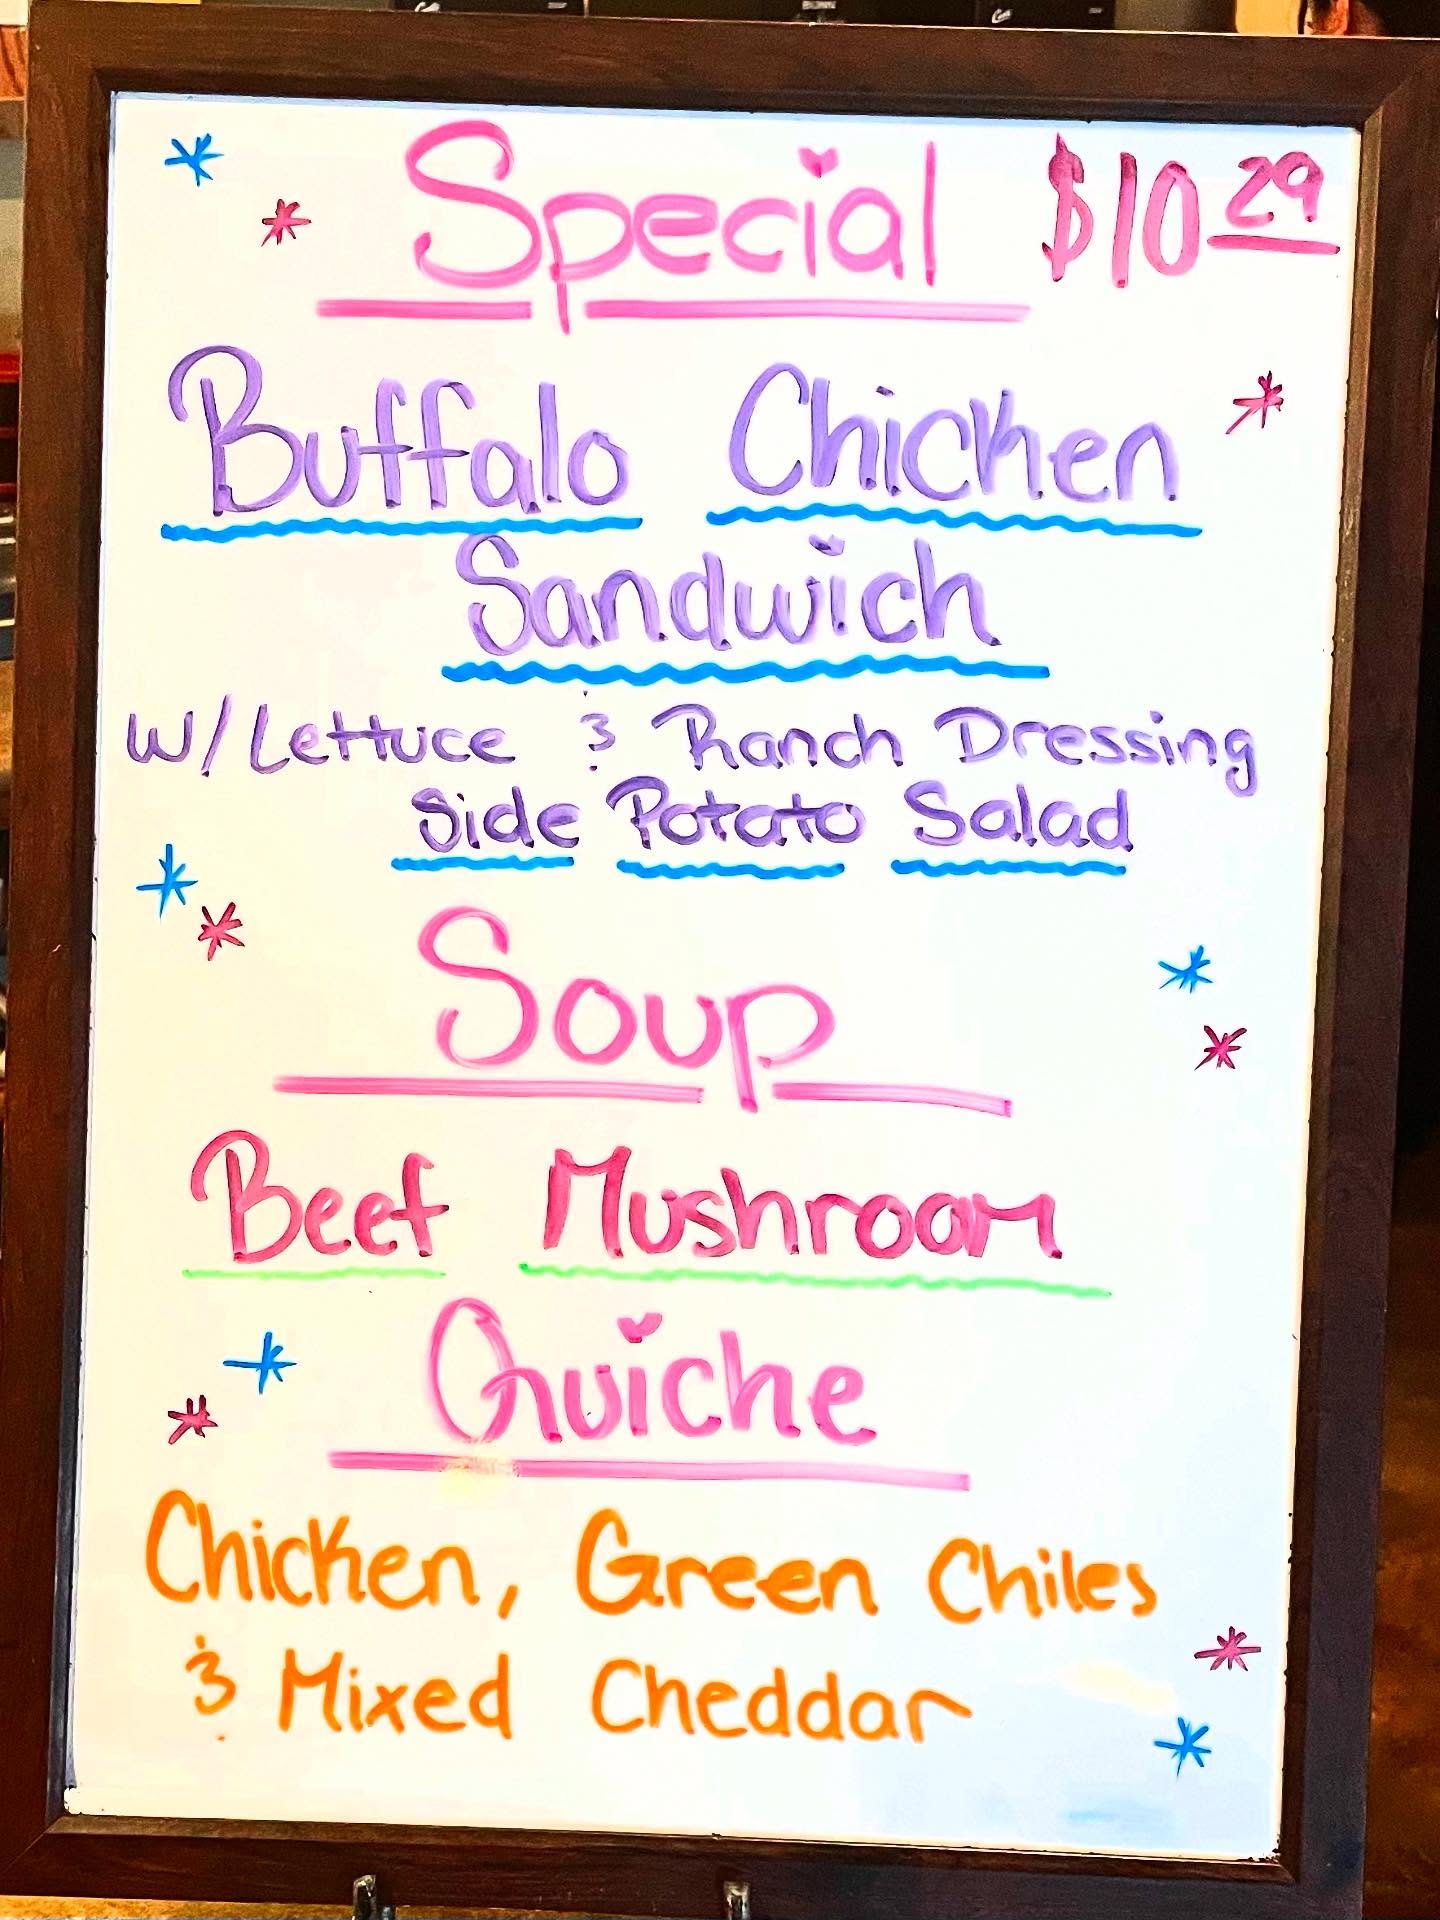 Special $10 29
Buffalo Chicken
Sandwich
W/ Lettuce & Ranch Dressing
Side Potato Salad
Soup
Beef Mushroom
Quiche
Chicken, Green Chiles
& Mixed Cheddar